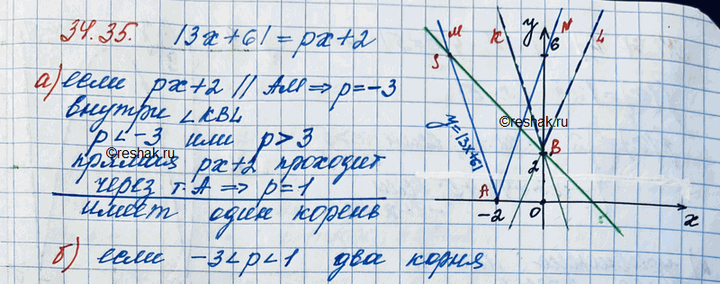 34.35. |3x+6| = px+2
а) если px+2 // AM ⇒ p=-3
внутри ∠KBL
p<-3 или p>3
прямая px+2 проходит
©reshak.ru
через т. A ⇒ p=1
имеет один корень
б) если -3<p<1 два корня
M
K
y
N
6
L
S
©reshak.ru
y=|3x+6|
B
2
A
-2
0
x